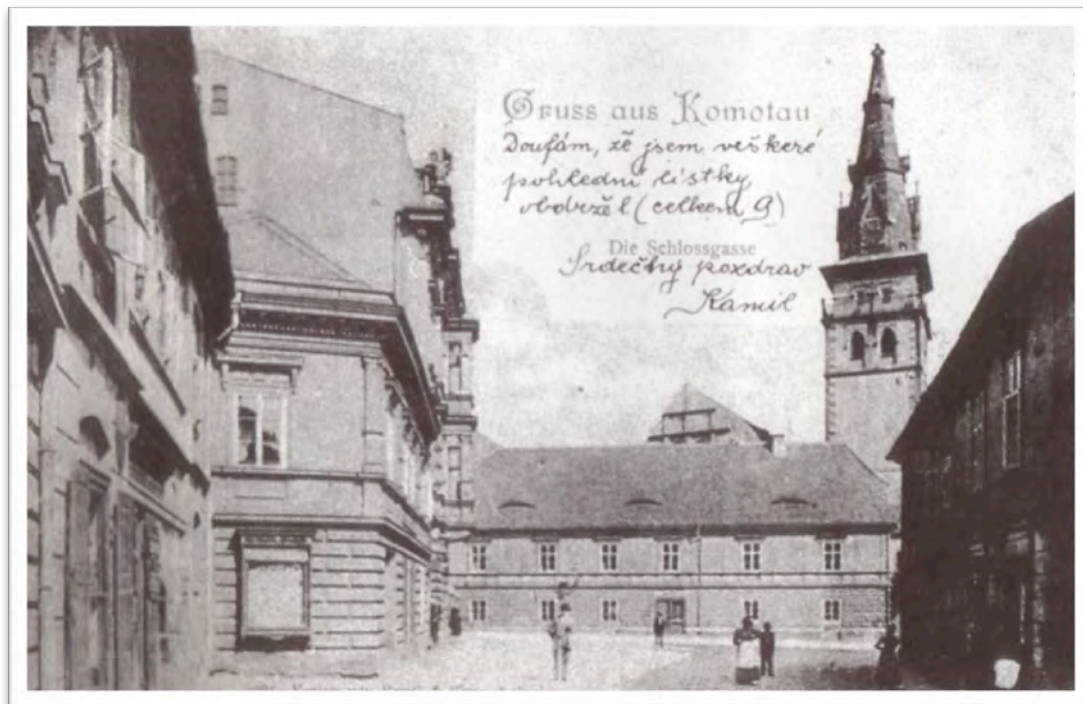 Gruss aus Komotau
Doufám, že jsem veškeré
pohlední lístky
obdržel (celkem 9)
Die Schlossgasse
Srdečný pozdrav
Kamil